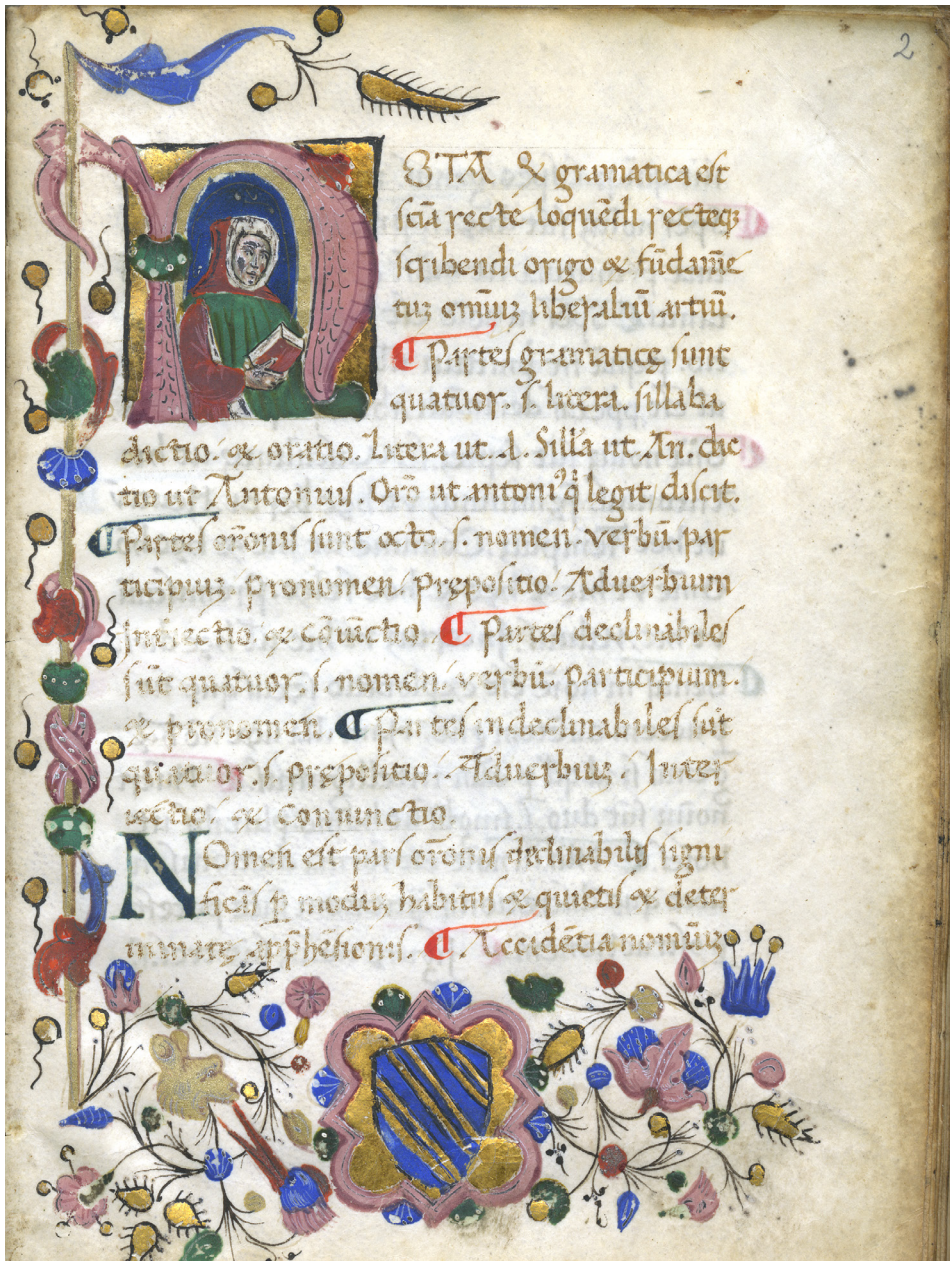 2
NOTA & gramatica est
scīa recte loquēdi recteqꝫ
scribendi origo & fūdamē
tuꝫ omīuꝫ liberaliū artiū.
¶ Partes gramaticę sunt
quatuor. s. litera. sillaba
dictio. & oratio. Litera ut .A. Silla ut An. dic
tio ut Antonius. Orō ut antoniꝰ legit / discit.
¶ Partes orōnis sunt octo. s. nomen. verbū. par
ticipiuꝫ. pronomen. prępositio. Aduerbium
Intiectio. & cōiūctio. ¶ Partes declinabiles
sūt quatuor. s. nomen. verbū. participium.
& pronomen. ¶ Partes indeclinabiles sūt
quatuor. s. prępositio. Aduerbiuꝫ. Inter
iectio. & coniunctio.
NOmen est pars orōnis declinabilis signi
ficās ꝑ moduꝫ habitus & quietis & deter
minatę apphēsionis. ¶ Accidētia nomīuꝫ